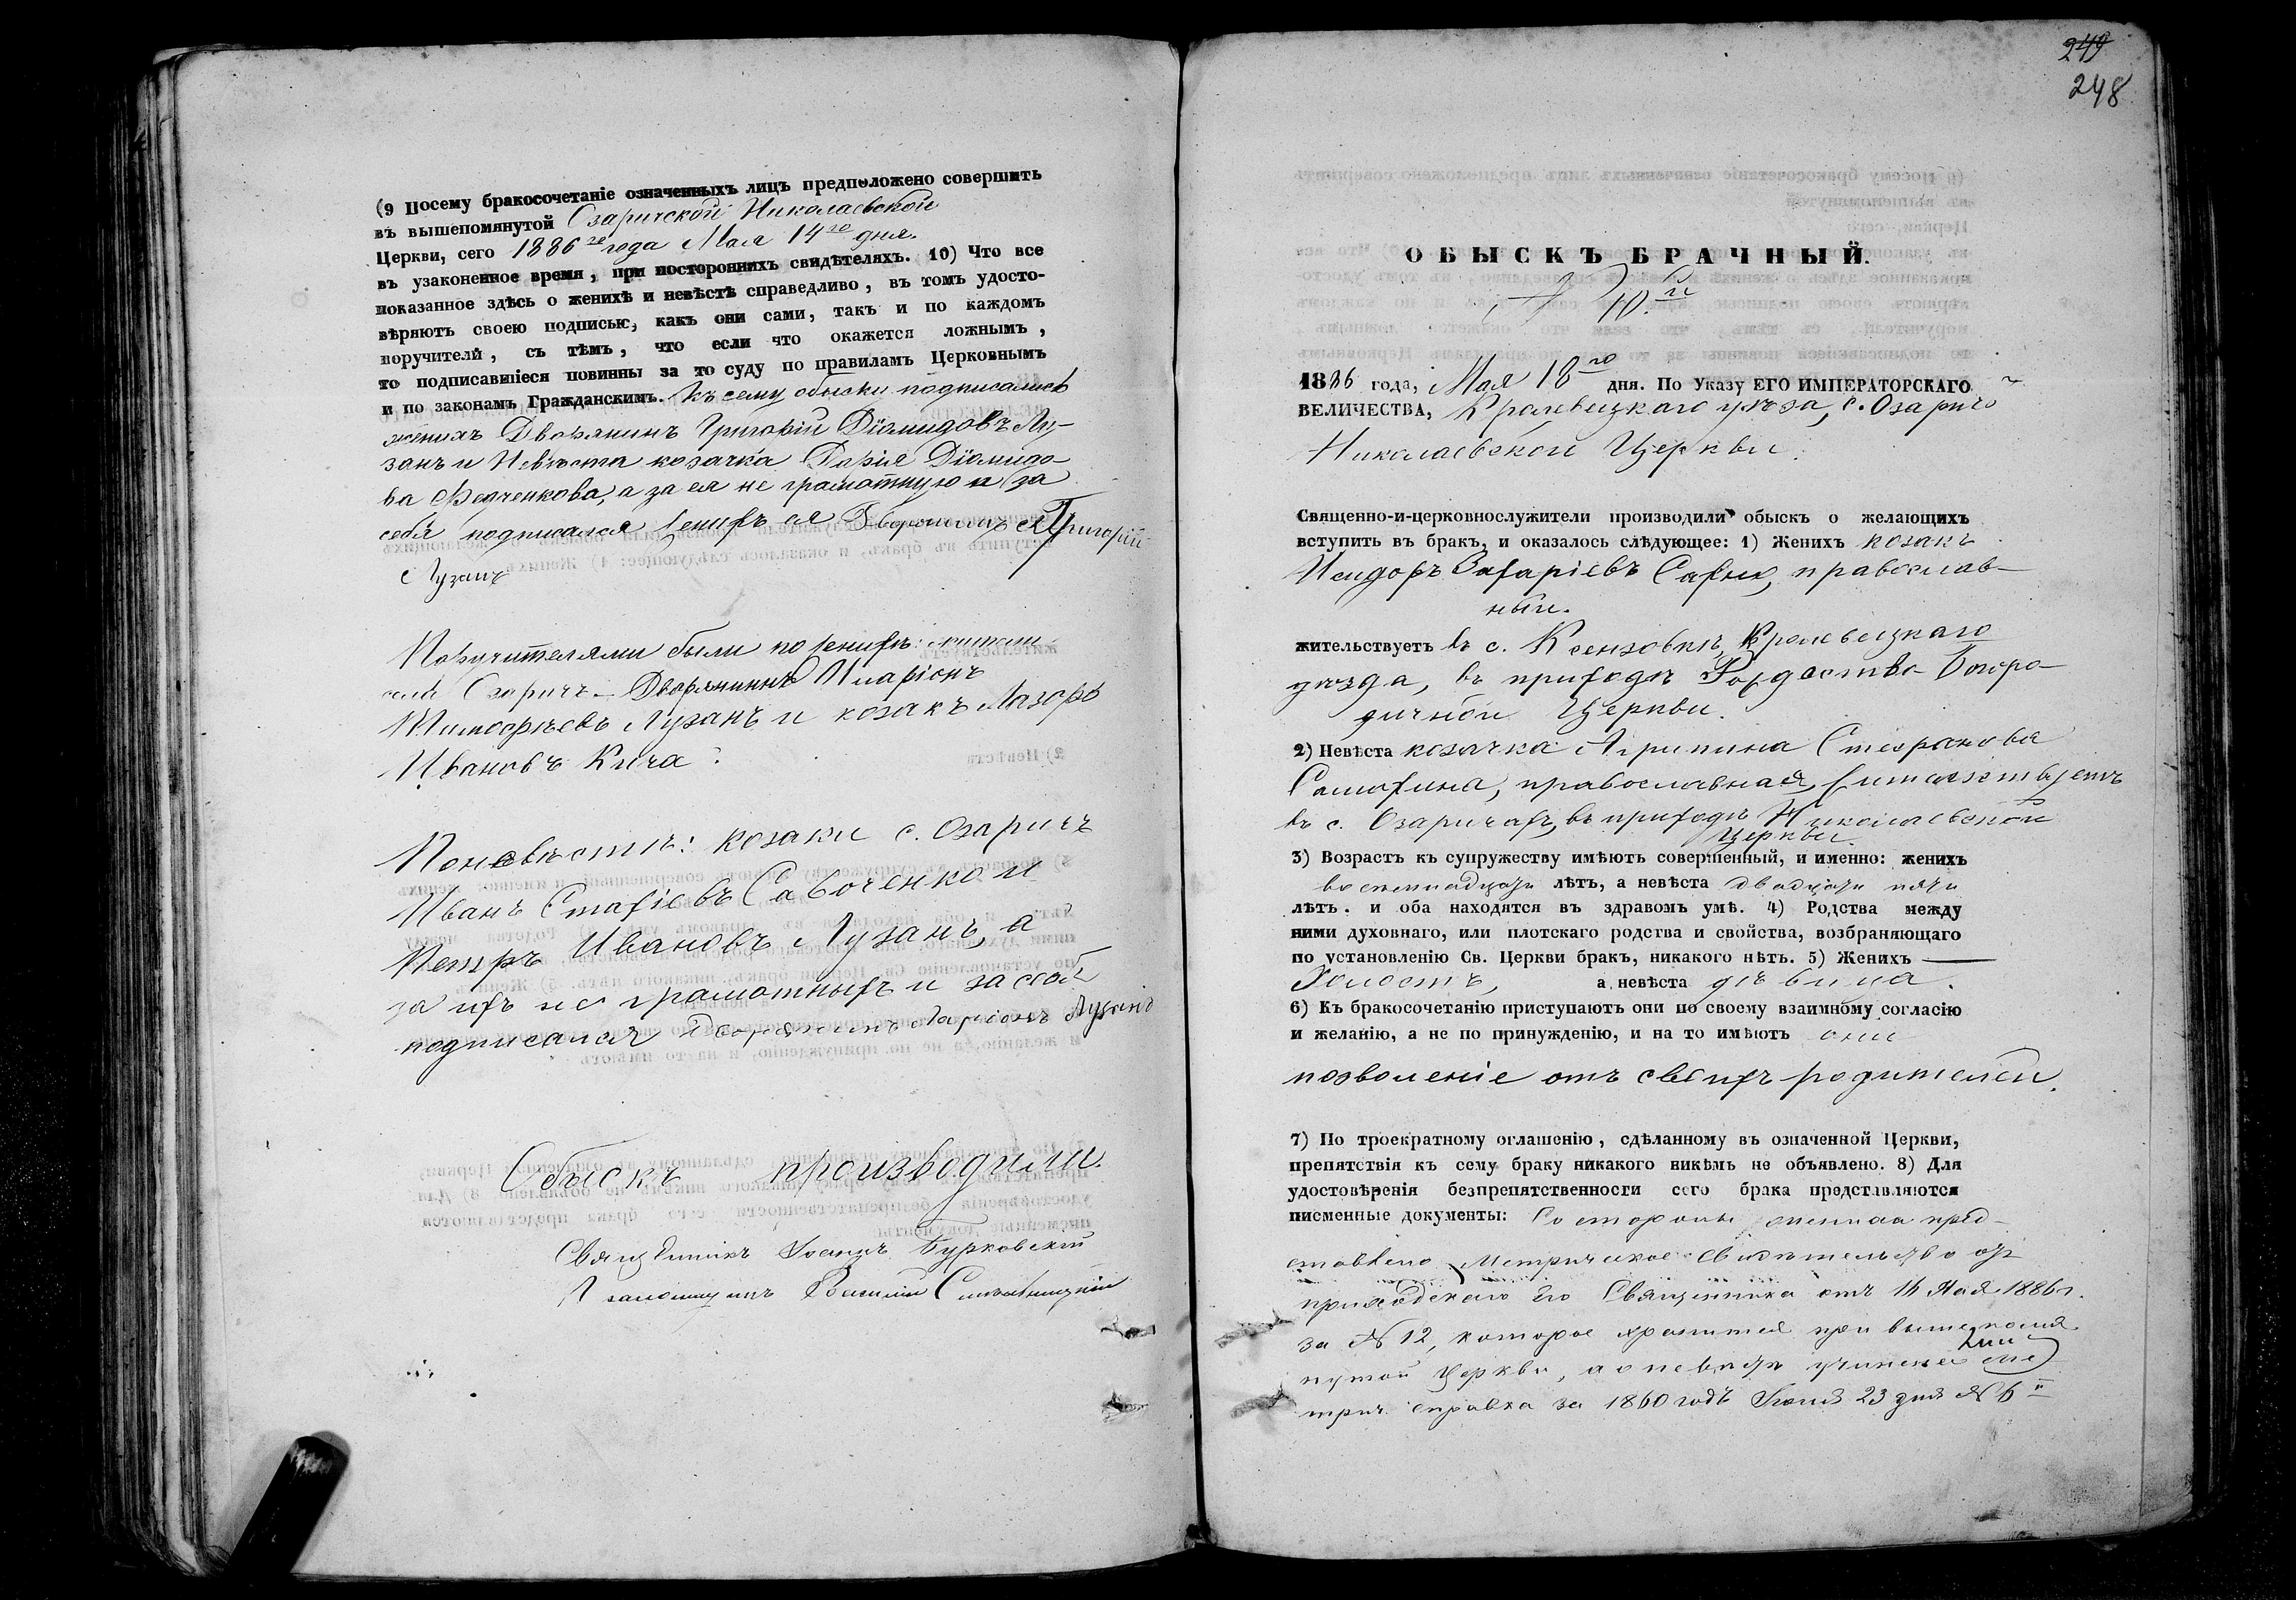 (9 Посему бракосочетаніе означенныхъ лицъ предположено совершить
въ вышепомянутой Озаричской Николаевской
Церкви, сего 1886 го года Мая 14 го дня.
въ узаконенное время, при постороннихъ свидѣтеляхъ. 10) Что все
показанное здѣсь о женихѣ и невѣстѣ справедливо, въ томъ удосто-
вѣряютъ своею подписью, какъ они сами, такъ и по каждомъ
поручители, съ тѣмъ, что если что окажется ложнымъ,
то подписавшіеся повинны за то суду по правиламъ Церковнымъ
и по законамъ Гражданскимъ. Къ сему обыску подписались
женихъ Дворянинъ Григорій Діомидовъ Лу-
занъ и Невѣста козачка Дарія Діомидо-
ва Федченкова, а за ея не грамотную и за
себя подписался женихъ ея Дворянинъ Григорій
Лузанъ
Поручителями были по женихѣ: жители
села Озаричъ - Дворянинъ Иларіонъ
Тимофѣевъ Лузанъ и козакъ Лазорь
Ивановъ Кича.
По невѣстѣ: козаки с. Озаричъ
Иванъ Стахіевъ Савоченко и
Петръ Ивановъ Лузанъ, а
за ихъ не грамотныхъ и за себя
подписался Дворянинъ Ларіонъ Лузанъ
Обыскъ производили:
Священникъ Іоаннъ Бурковскій
Псаломщикъ Василій
249
248
ОБЫСКЪ БРАЧНЫЙ.
№ 10.й
1886 года, Мая 18 го дня. По Указу ЕГО ИМПЕРАТОРСКАГО
ВЕЛИЧЕСТВА, Кролевецкаго уѣзда, с. Озаричъ
Николаевской Церкви.
Священно-и-церковнослужители производили обыскъ о желающихъ
вступить въ бракъ, и оказалось слѣдующее: 1) Женихъ козакъ
Исидоръ Захаріевъ Сахно, православ-
ный.
жительствуетъ въ с. Ксензовкѣ, Кролевецкаго
уѣзда, въ приходѣ Рождество-Богоро-
дичной Церкви.
2) Невѣста козачка Агрипина Стефанова
Самохина, православная, жительствуетъ
въ с. Озаричахъ, въ приходѣ Николаевской
Церкви.
3) Возрастъ къ супружеству имѣютъ совершенный, и именно: женихъ
восемнадцати лѣтъ, а невѣста двадцати пяти
лѣтъ. и оба находятся въ здравомъ умѣ. 4) Родства между
ними духовнаго, или плотскаго родства и свойства, возбраняющаго
по установленію Св. Церкви бракъ, никакого нѣтъ. 5) Женихъ —
Холостъ, а невѣста дѣвица.
6) Къ бракосочетанію приступаютъ они по своему взаимному согласію
и желанію, а не по принужденію, и на то имѣютъ они
позволеніе отъ своихъ родителей.
7) По троекратному оглашенію, сдѣланному въ означенной Церкви,
препятствія къ сему браку никакого никѣмъ не объявлено. 8) Для
удостовѣренія безпрепятственности сего брака представляются
писменные документы: Со стороны жениха пред-
ставлено Метрическое свидѣтельство отъ
приходскаго его Священника отъ 14 Мая 1886 г.
за № 12, которое хранится при вышепомя-
нутой Церкви, а о невѣстѣ учинена ме
трич. справка за 1860 годъ Іюня 23 дня № 6